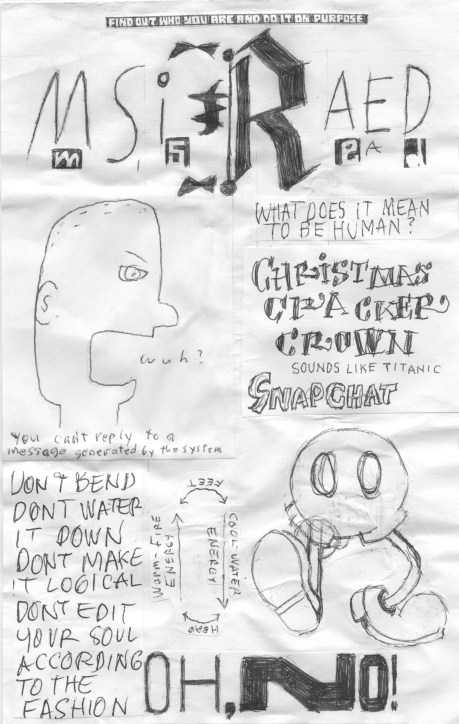 FIND OUT WHO YOU ARE AND DO IT ON PURPOSE
WHAT DOES IT MEAN
TO BE HUMAN?
CHRISTMAS
CRACKER
CROWN
SOUNDS LIKE TITANIC
SNAPCHAT
wuh?
You can't reply to a
message generated by the system
DON'T BEND
DONT WATER
IT DOWN
DONT MAKE
IT LOGICAL
DON'T EDIT
YOUR SOUL
ACCORDING
TO THE
FASHION
FEET
WARM-FIRE
ENERGY
COOL WATER
ENERGY
HEAD
OH, NO!